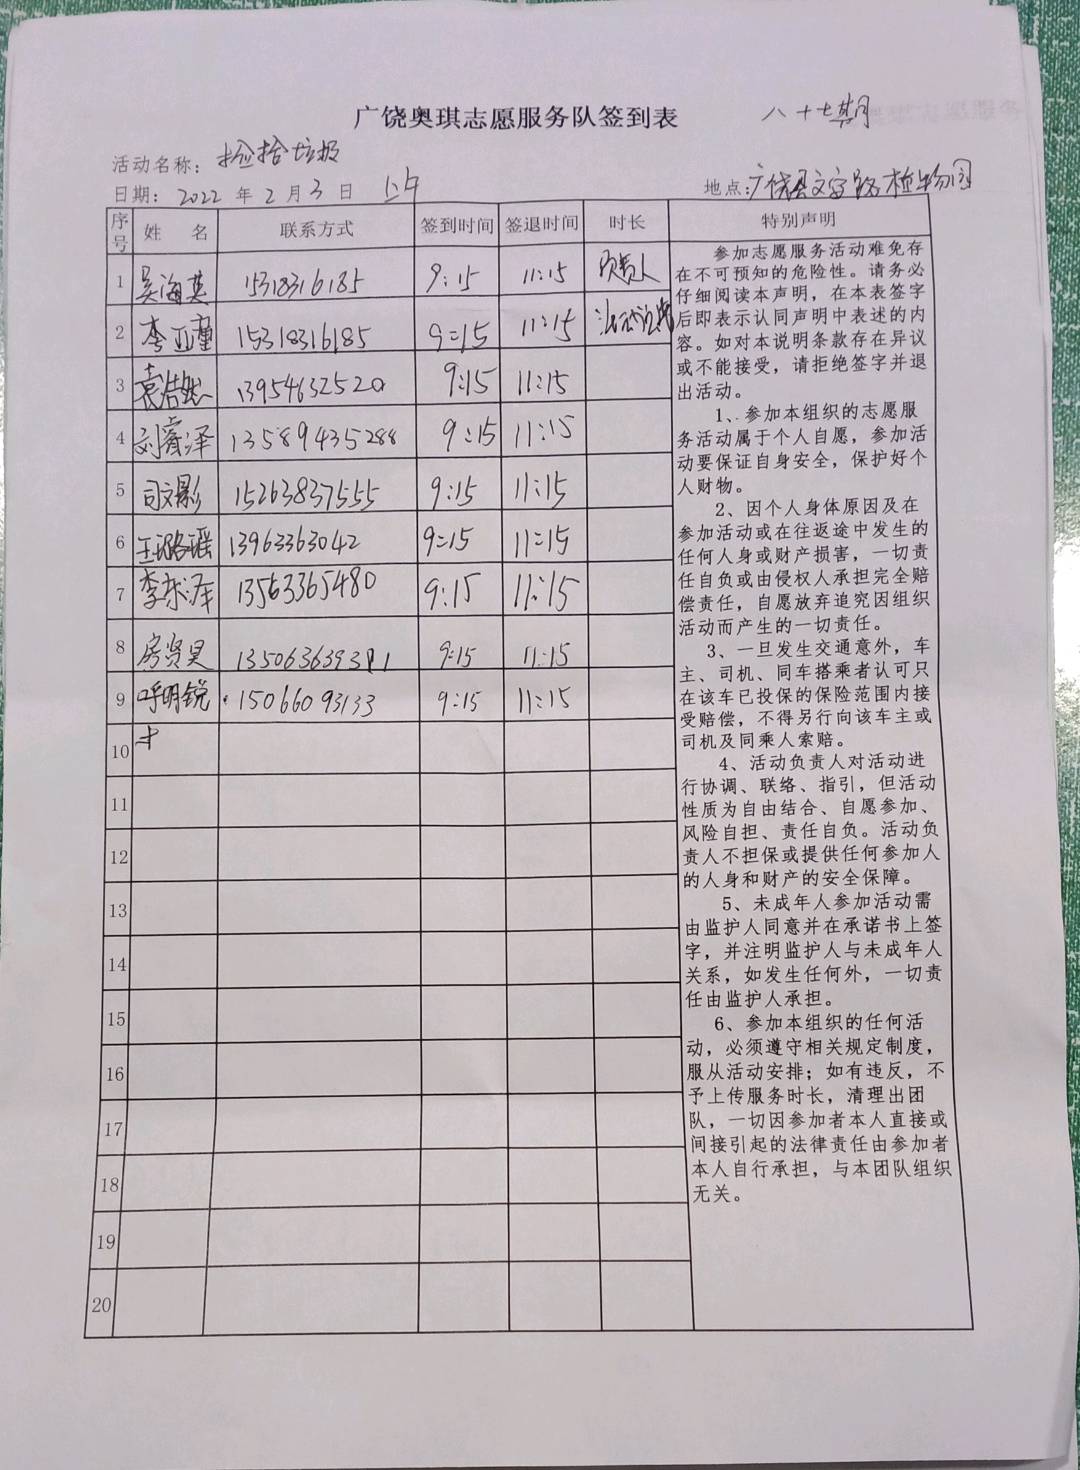 广饶奥琪志愿服务队签到表 八十七期
活动名称：捡拾垃圾
日期：2022年2月3日 上午 地点：广饶县文安路植物园
序号 姓名 联系方式 签到时间 签退时间 时长 特别声明
1 吴海英 15318316185 9:15 11:15 负责人
2 李亚蕫 15318316185 9:15 11:15
3 袁浩然 13954632520 9:15 11:15
4 刘睿泽 13589435288 9:15 11:15
5 司文影 15263837555 9:15 11:15
6 王璐瑶 13963363042 9:15 11:15
7 李泽 13563365480 9:15 11:15
8 房贤昊 1350636393 1 9:15 11:15
9 呼明锐 15066093133 9:15 11:15
10
11
12
13
14
15
16
17
18
19
20
参加志愿服务活动难免存
在不可预知的危险性。请务必
仔细阅读本声明，在本表签字
后即表示认同声明中表述的内
容。如对本说明条款存在异议
或不能接受，请拒绝签字并退
出活动。
1、参加本组织的志愿服
务活动属于个人自愿，参加活
动要保证自身安全，保护好个
人财物。
2、因个人身体原因及在
参加活动或在往返途中发生的
任何人身或财产损害，一切责
任自负或由侵权人承担完全赔
偿责任，自愿放弃追究因组织
活动而产生的一切责任。
3、一旦发生交通意外，车
主、司机、同车搭乘者认可只
在该车已投保的保险范围内接
受赔偿，不得另行向该车主或
司机及同乘人索赔。
4、活动负责人对活动进
行协调、联络、指引，但活动
性质为自由结合、自愿参加、
风险自担、责任自负。活动负
责人不担保或提供任何参加人
的人身和财产的安全保障。
5、未成年人参加活动需
由监护人同意并在承诺书上签
字，并注明监护人与未成年人
关系，如发生任何外，一切责
任由监护人承担。
6、参加本组织的任何活
动，必须遵守相关规定制度，
服从活动安排；如有违反，不
予上传服务时长，清理出团
队，一切因参加者本人直接或
间接引起的法律责任由参加者
本人自行承担，与本团队组织
无关。